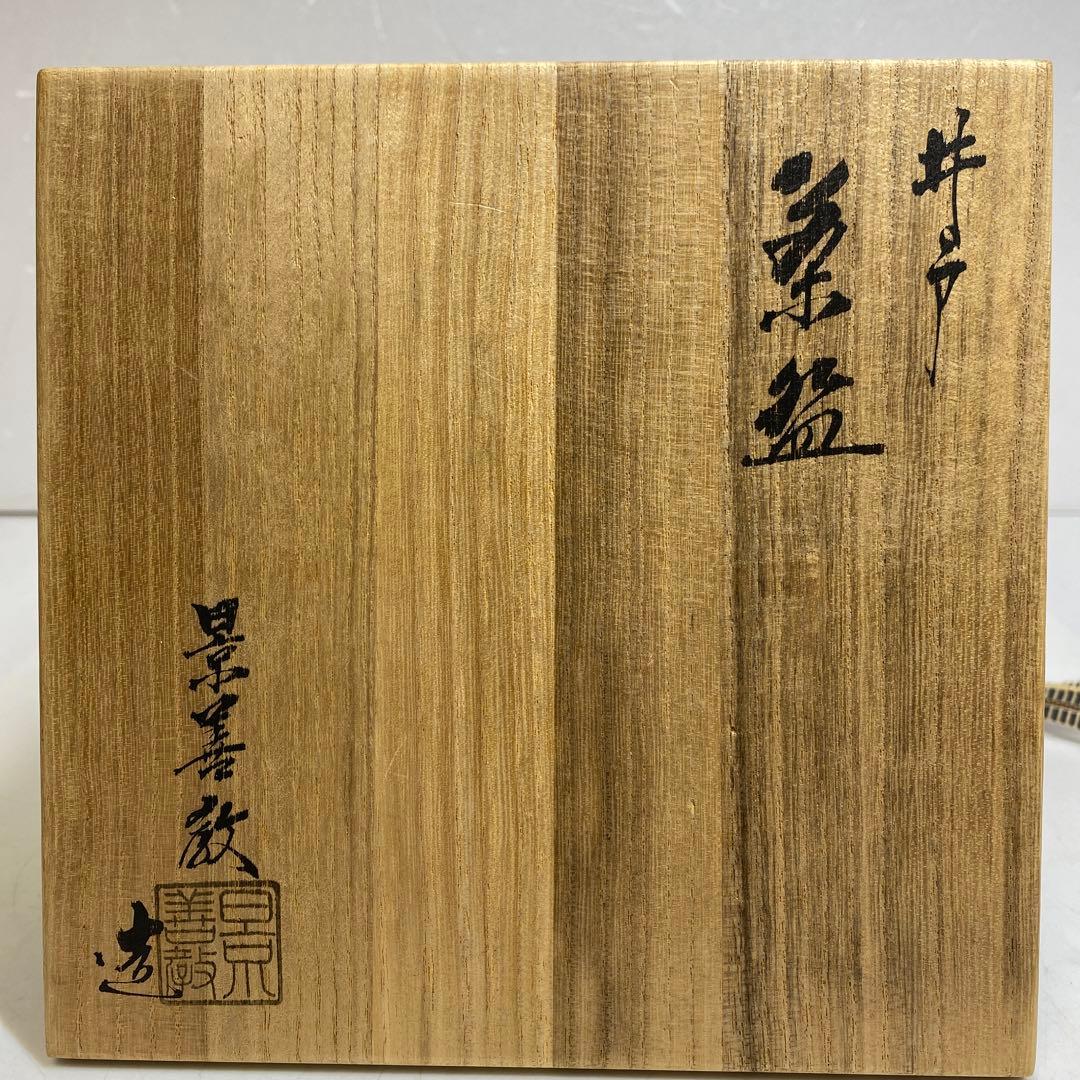 井戸
茶盌
景善教
造
景善教